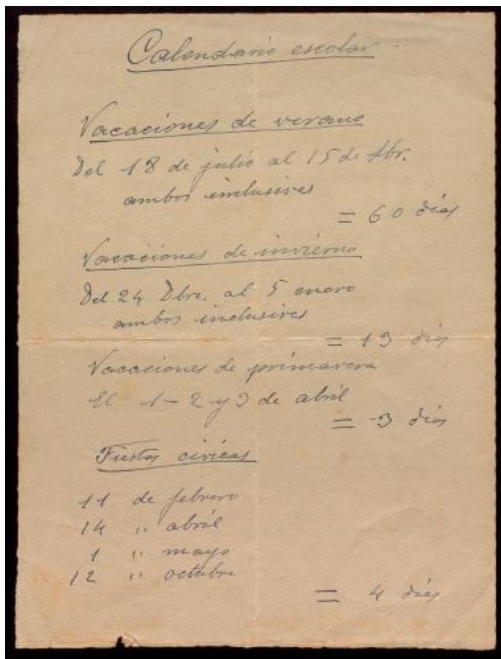 Calendario escolar
Vacaciones de verano
Del 18 de julio al 15 de Sbr.
ambos inclusives
= 60 días
Vacaciones de invierno
Del 24 Dbre. al 5 enero
ambos inclusives
= 13 días
Vacaciones de primavera
El 1-2 y 3 de abril
= 3 días
Fiestas cívicas
11 de febrero
14 " abril
1 " mayo
12 " octubre
= 4 días